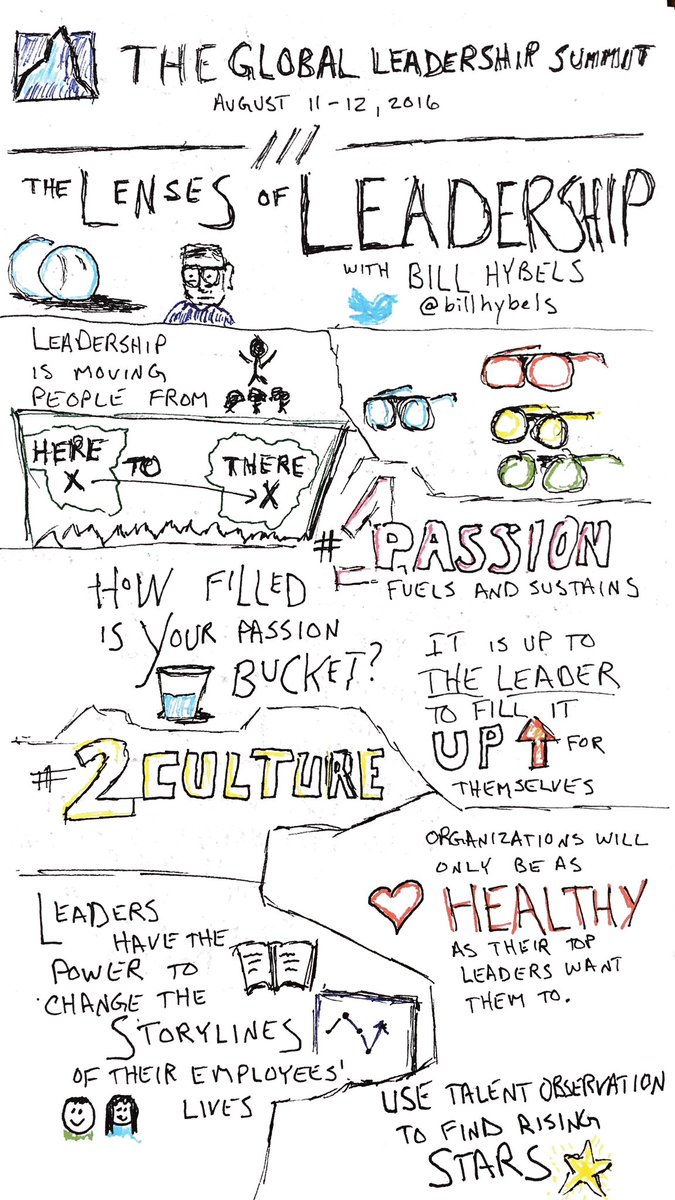 THE GLOBAL LEADERSHIP SUMMIT
AUGUST 11-12, 2016
THE LENSES OF LEADERSHIP
WITH BILL HYBELS
@billhybels
LEADERSHIP
IS MOVING
PEOPLE FROM
HERE TO THERE
X X
#1 PASSION
FUELS AND SUSTAINS
HOW FILLED
IS YOUR PASSION
BUCKET?
IT IS UP TO
THE LEADER
TO FILL IT
UP FOR
THEMSELVES
#2 CULTURE
ORGANIZATIONS WILL
ONLY BE AS
HEALTHY
AS THEIR TOP
LEADERS WANT
THEM TO.
LEADERS
HAVE THE
POWER TO
CHANGE THE
STORYLINES
OF THEIR EMPLOYEES'
LIVES
USE TALENT OBSERVATION
TO FIND RISING
STARS